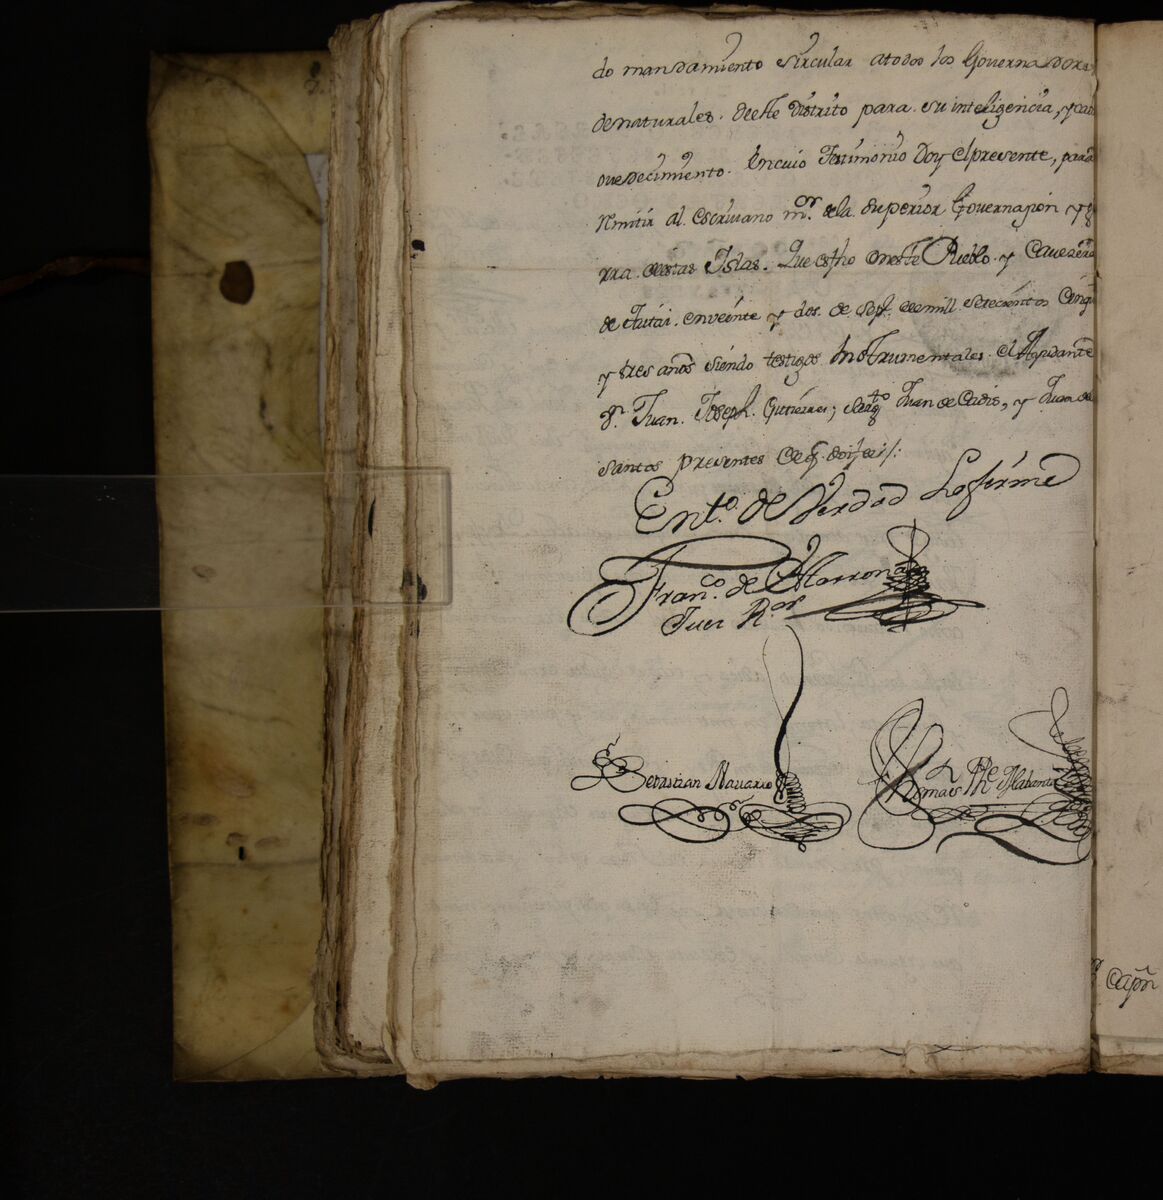 do mandamiento sircular atodos los Governadora
denaturales. deeste distrito para. su inteligencia, y pa
ovedecimiento. Encuio Testimonio Doy el presente, para
Remitir al escriuano mor. dela. superior Governazion y g
rra. destas Islas. Que es fho eneste Pueblo. y Cavesera
de enveinte y dos. de Sepe. demill. setecientos Cinq
y tres años siendo testigos Instrumentales. el Ayudante
Dn. Juan. Joseph. Gutierres; Sargto. Juan de Cadis, y Juan de
santos presentes
Ento. de Verdad Lo firme
Franco. de Marrona
Juez Ror
Sebastian Nauarro
Thomas Phe
Capn